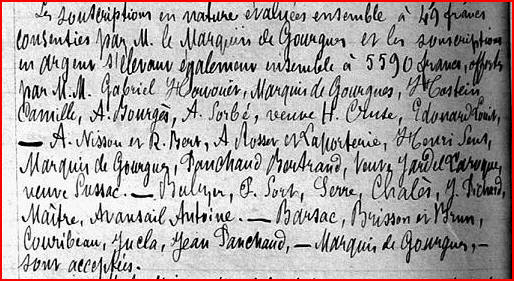 Les souscriptions en nature évaluées ensemble à 49 francs
consenties par M. le Marquis de Gourgues et les souscriptions
en argent s'élevant également ensemble à 5590 francs, offertes
par M.M. Gabriel Marquis de Gourgues, Hostein
Camille, A. Bourgès, A. Sorbé, veuve H. Cruse, Edouard
— A. Nisson et R. Bert, A Rosser et Laporterie, Henri Sens,
Marquis de Gourgues, Panchaud Bertrand, Veuve
veuve Sussac. — P. Sort, Serre, Chalès, J. Richard,
Maître, Avansail Antoine. — Barsac, Brisson et Brun,
Couribeau, Jucla, Jean Panchaud, — Marquis de Gourgues, —
sont acceptées.